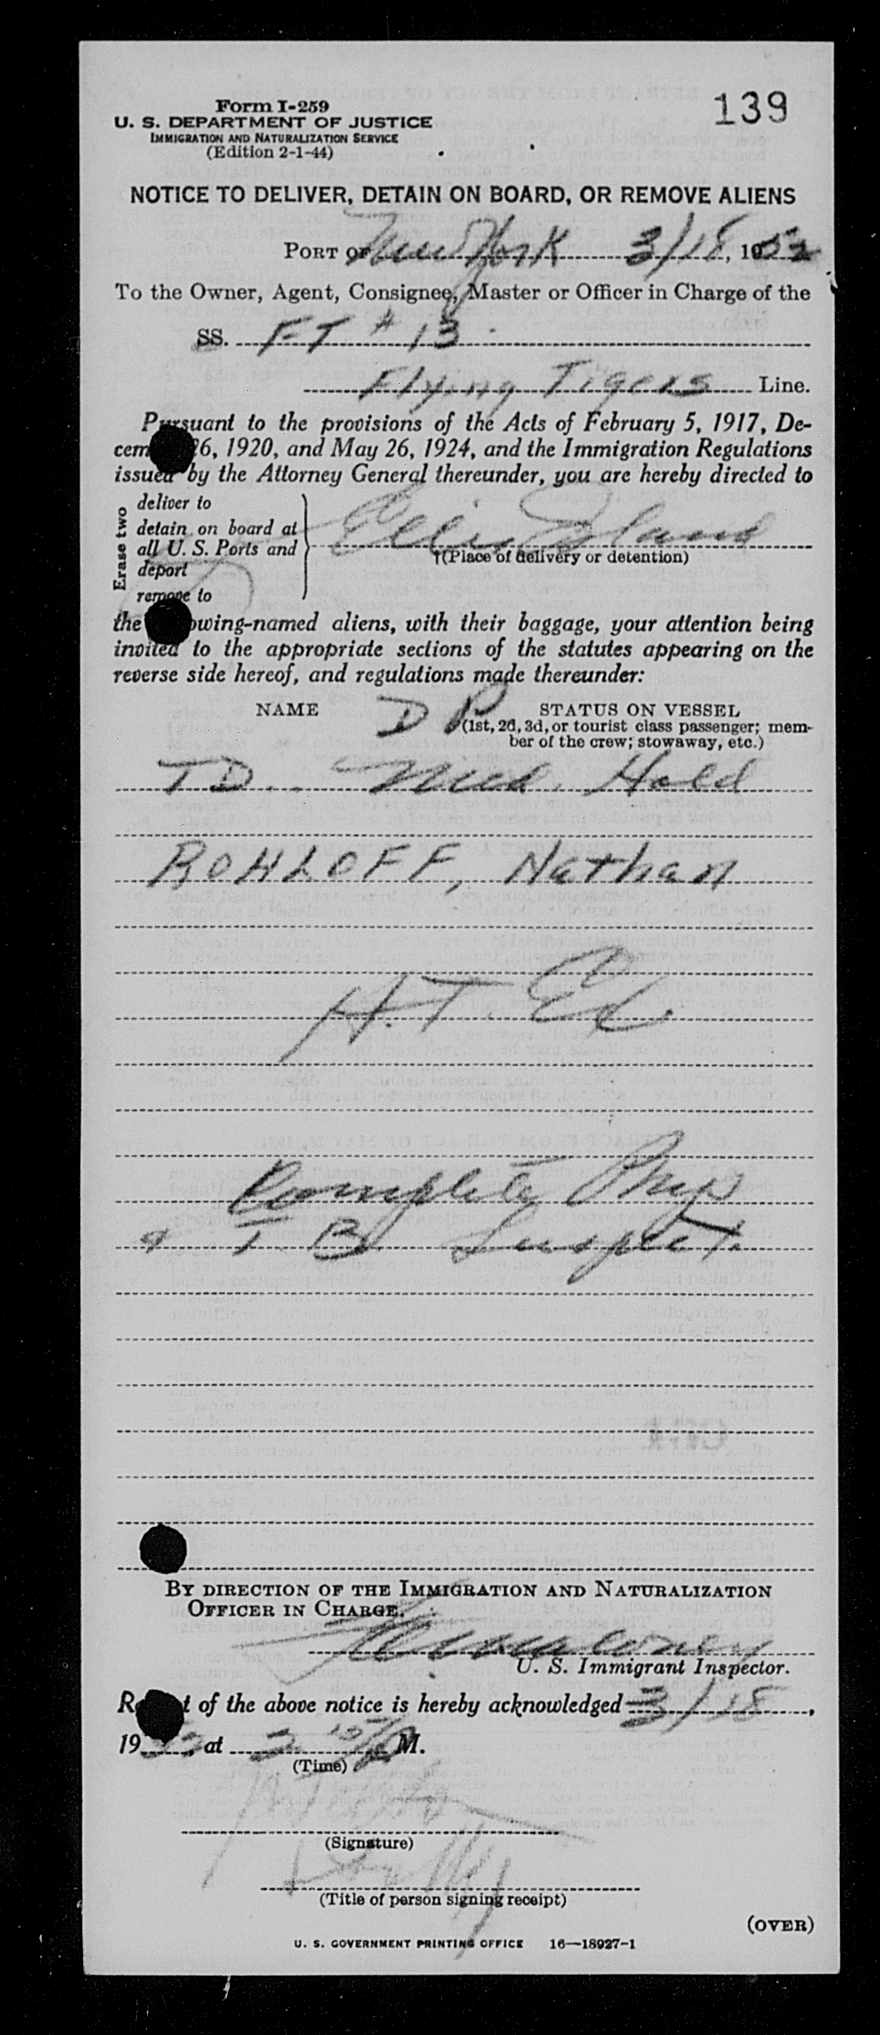 139
Form I-259
U. S. DEPARTMENT OF JUSTICE
IMMIGRATION AND NATURALIZATION SERVICE
(Edition 2-1-44)
NOTICE TO DELIVER, DETAIN ON BOARD, OR REMOVE ALIENS
PORT OF New York 3/18, 1952
To the Owner, Agent, Consignee, Master or Officer in Charge of the
SS. F-T #13
Flying Tigers Line.
Pursuant to the provisions of the Acts of February 5, 1917, De-
cem 26, 1920, and May 26, 1924, and the Immigration Regulations
issued by the Attorney General thereunder, you are hereby directed to
Erase two
deliver to
detain on board at
all U. S. Ports and
deport
remove to
Ellis Island
†(Place of delivery or detention)
the owing-named aliens, with their baggage, your attention being
invited to the appropriate sections of the statutes appearing on the
reverse side hereof, and regulations made thereunder:
NAME DP STATUS ON VESSEL
(1st, 2d, 3d, or tourist class passenger; mem-
ber of the crew; stowaway, etc.)
TD Med. Hold
ROHLOFF, Nathan
H.T. Ex.
Complete Phys
& T. B. Suspect.
BY DIRECTION OF THE IMMIGRATION AND NATURALIZATION
OFFICER IN CHARGE.
U. S. Immigrant Inspector.
R t of the above notice is hereby acknowledged 3/18,
19 at M.
(Time)
(Signature)
(Title of person signing receipt)
(OVER)
U. S. GOVERNMENT PRINTING OFFICE 16—18927-1